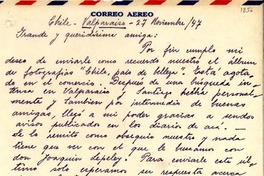 CORREO AEREO
1856
Chile - Valparaíso - 27 Noviembre/47
Grande y queridísima amiga:
Por fin cumplo mi
deseo de enviarle como acuerdo nuestro el álbum
de fotografías Chile, país de belleza. Está agota-
do en el comercio. Después de una búsqueda in-
tensa en Valparaíso y Santiago hecha personal-
mente y también por intermedio de buenas
amigas, llegó a mi poder gracias a sendos
avisos publicados en los diarios de acá. -
Se lo remito como obsequio nuestro y nada
tiene que ver con el que le buscamos con
don Joaquín. Para enviarle este úl-
timo solo esperamos su respuesta acerca